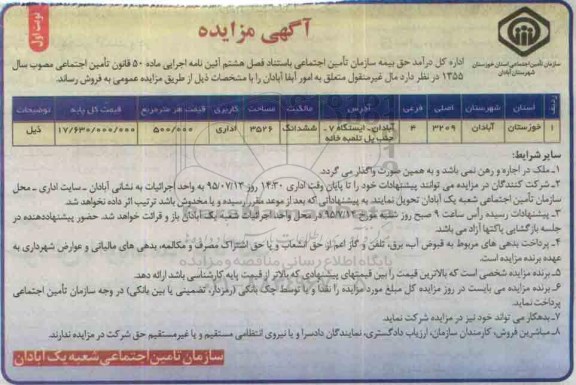 آگهی مزایده
نوبت اول
سازمان تأمین اجتماعی استان خوزستان
شهرستان آبادان
اداره کل درآمد حق بیمه سازمان تأمین اجتماعی باستناد فصل هشتم آئین نامه اجرایی ماده ۵۰ قانون تأمین اجتماعی مصوب سال
۱۳۵۵ در نظر دارد مال غیرمنقول متعلق به امور آبفا آبادان را با مشخصات ذیل از طریق مزایده عمومی به فروش رساند.
ردیف استان شهرستان اصلی فرعی آدرس مالکیت مساحت کاربری قیمت هر مترمربع قیمت کل پایه توضیحات
۱ خوزستان آبادان ۳۲۰۹ ۳ آبادان ـ ایستگاه ۷ ـ ششدانگ ۳۵۲۶ اداری ۵۰۰/۰۰۰ ۱۷/۶۳۰/۰۰۰/۰۰۰ ذیل
جنب پل تلمبه خانه
سایر شرایط:
۱ـ ملک در اجاره و رهن نمی باشد و به همین صورت واگذار می گردد.
۲ـ شرکت کنندگان در مزایده می توانند پیشنهادات خود را تا پایان وقت اداری ۱۴:۳۰ روز ۹۵/۰۷/۱۲ به واحد اجرائیات به نشانی آبادان ـ سایت اداری ـ محل
سازمان تأمین اجتماعی شعبه یک آبادان تحویل نمایند. به پیشنهاداتی که بعد از موعد مقرر رسیده و یا مخدوش باشد ترتیب اثر داده نخواهد شد.
۳ـ پیشنهادات رسیده رأس ساعت ۹ صبح روز شنبه مورخ ۹۵/۷/۱۳ در محل واحد اجرائیات شعبه یک آبادان باز و قرائت خواهد شد. حضور پیشنهاددهنده در
جلسه بازگشایی پاکتها آزاد می باشد.
۴ـ پرداخت بدهی های مربوط به قبوض آب، برق، تلفن و گاز اعم از حق انشعاب و یا حق اشتراک مصرف و مکالمه، بدهی های مالیاتی و عوارض شهرداری به
عهده برنده مزایده است.
۵ـ برنده مزایده شخصی است که بالاترین قیمت را بین قیمتهای پیشنهادی که بالاتر از قیمت پایه کارشناسی باشد ارائه دهد.
۶ـ برنده مزایده می بایست در روز مزایده کل مبلغ مورد مزایده را نقداً و یا توسط چک بانکی (رمزدار، تضمینی یا بین بانکی) در وجه سازمان تأمین اجتماعی
پرداخت نماید.
۷ـ بدهکار می تواند خود نیز در مزایده شرکت نماید.
۸ـ مباشرین فروش، کارمندان سازمان، ارزیاب دادگستری، نمایندگان دادسرا و یا نیروی انتظامی مستقیم و یا غیرمستقیم حق شرکت در مزایده ندارند.
سازمان تأمین اجتماعی شعبه یک آبادان